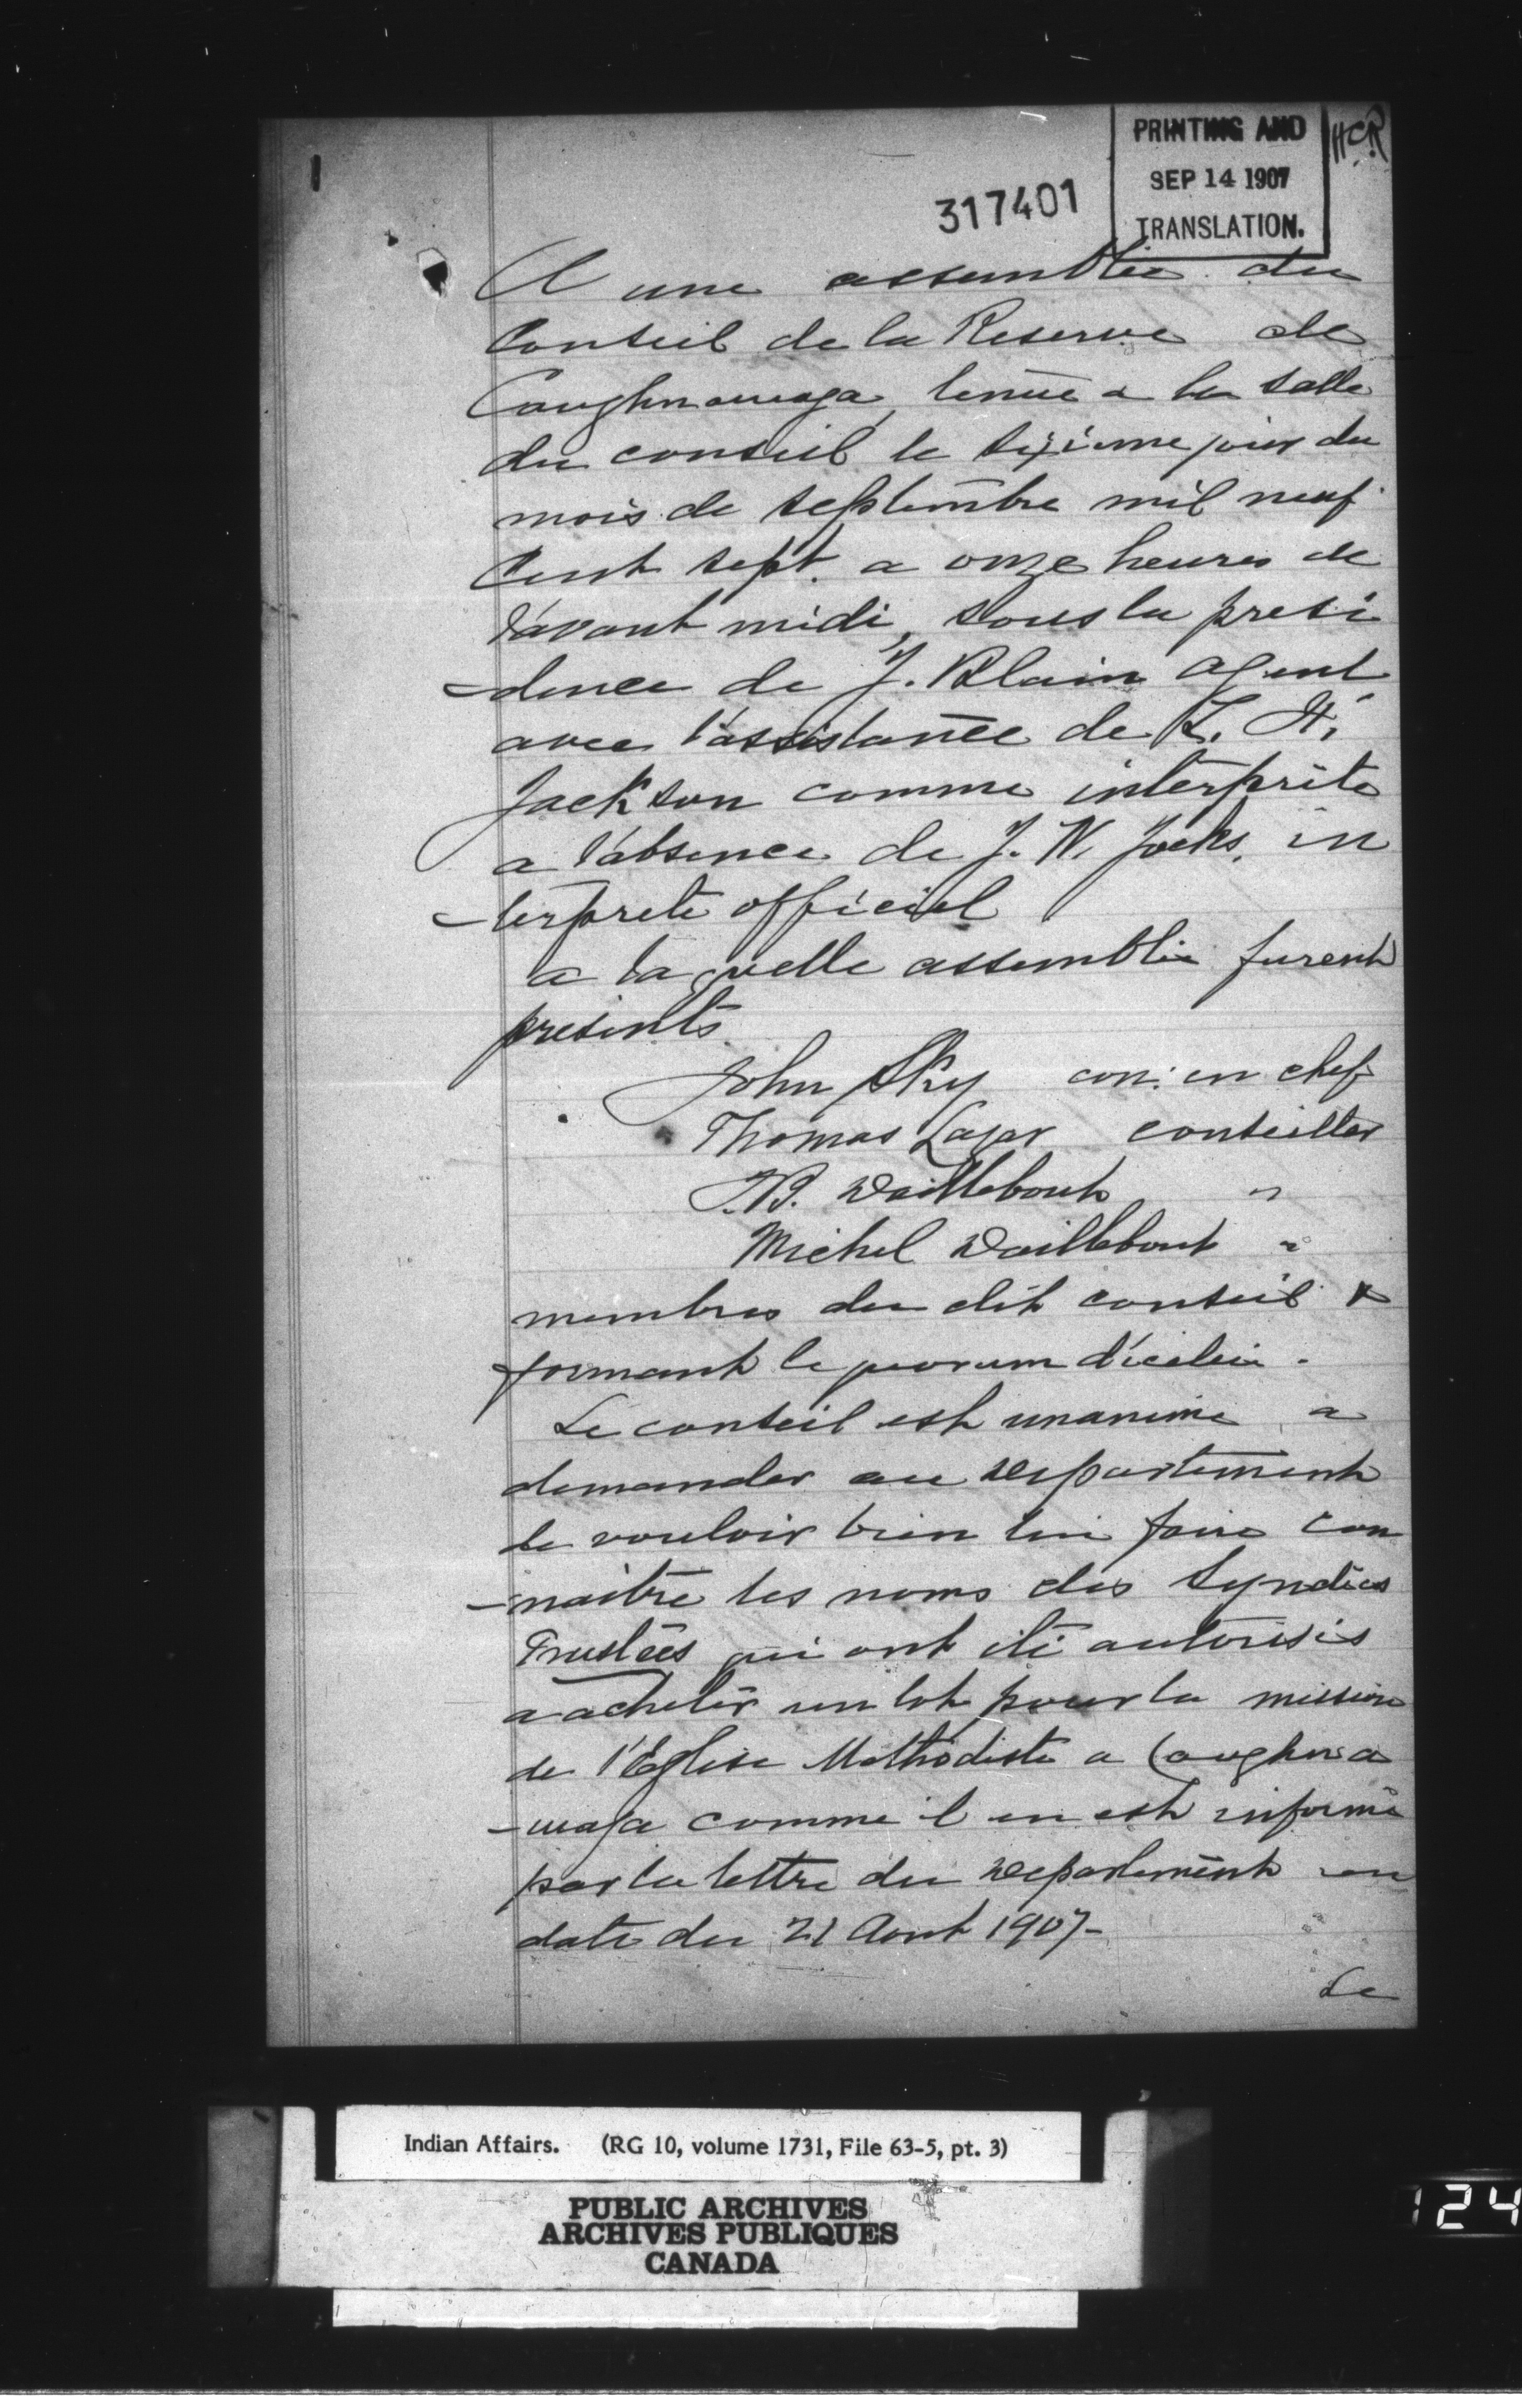 1
PRINTING AND
SEP 14 1907
TRANSLATION.
HCR
317401
A une assemblée du
Conseil de la Reserve de
Caughnawaga, tenue a la salle
du conseil le sixieme jour du
mois de septembre mil neuf
Cent sept. a onze heures de
l'avant midi, sous la presi
-dence de J. Blain agent
avec l'assistance de L. H.
Jackson comme interprète
a l'absence de J. W. Jocks, in
-terprete officiel
a la quelle assemblée furent
presents.
John Sky con: en chef
Thomas Lazar conseiller
J.B. Daillebout "
Michel Daillebout "
membres du dit conseil &
formant le quorum d'icelui.
Le conseil est unanime a
demander au Departement
de vouloir bien lui faire con
-naitre les noms des Syndics
Trustees qui ont été autorisés
a acheter un lot pour la mission
de l'Eglise Methodiste a Caughna
-waga comme il en est informé
par la lettre du Departement en
date du 21 Aout 1907-
Le
Indian Affairs. (RG 10, volume 1731, File 63-5, pt. 3)
PUBLIC ARCHIVES
ARCHIVES PUBLIQUES
CANADA
124